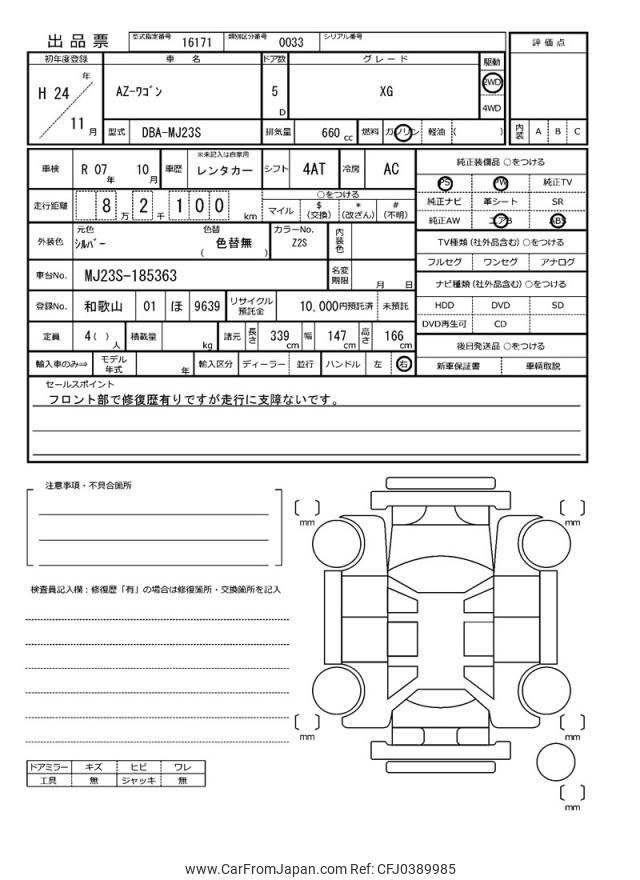 出品票
型式指定番号 16171 類別区分番号 0033 シリアル番号
評価点
初年度登録 車名 ドア数 グレード 駆動
H 24 年 11 月
AZ-ﾜｺﾞﾝ 5 D XG 2WD 4WD
型式 DBA-MJ23S 排気量 660 cc 燃料 ガソリン 軽油 ( )
内装 A B C
車検 R 07 年 10 月 車歴 ※未記入は自家用 レンタカー シフト 4AT 冷房 AC
純正装備品 ○をつける
PS PW 純正TV
純正ナビ 革シート SR
純正AW エアB ABS
走行距離 8 万 2 千 1 0 0 km
○をつける
マイル $ (交換) * (改ざん) # (不明)
TV種類 (社外品含む) ○をつける
フルセグ ワンセグ アナログ
外装色 元色 ｼﾙﾊﾞｰ 色替 ( 色替無 ) カラーNo. Z2S 内装色
車台No. MJ23S-185363 名変期限 月 日
ナビ種類 (社外品含む) ○をつける
HDD DVD SD
DVD再生可 CD
登録No. 和歌山 01 ほ 9639 リサイクル預託金 10,000円預託済 未預託
定員 4( ) 人 積載量 kg 諸元 長さ 339 cm 幅 147 cm 高さ 166 cm
後日発送品 ○をつける
新車保証書 車輌取説
輸入車のみ⇒ モデル年式 年 輸入区分 ディーラー 並行 ハンドル 左 右
セールスポイント
フロント部で修復歴有りですが走行に支障ないです。
注意事項・不具合箇所
検査員記入欄：修復歴「有」の場合は修復箇所・交換箇所を記入
mm
mm
mm
mm
mm
ドアミラー キズ ヒビ ワレ
工具 無 ジャッキ 無
www.CarFromJapan.com Ref: CFJ0389985